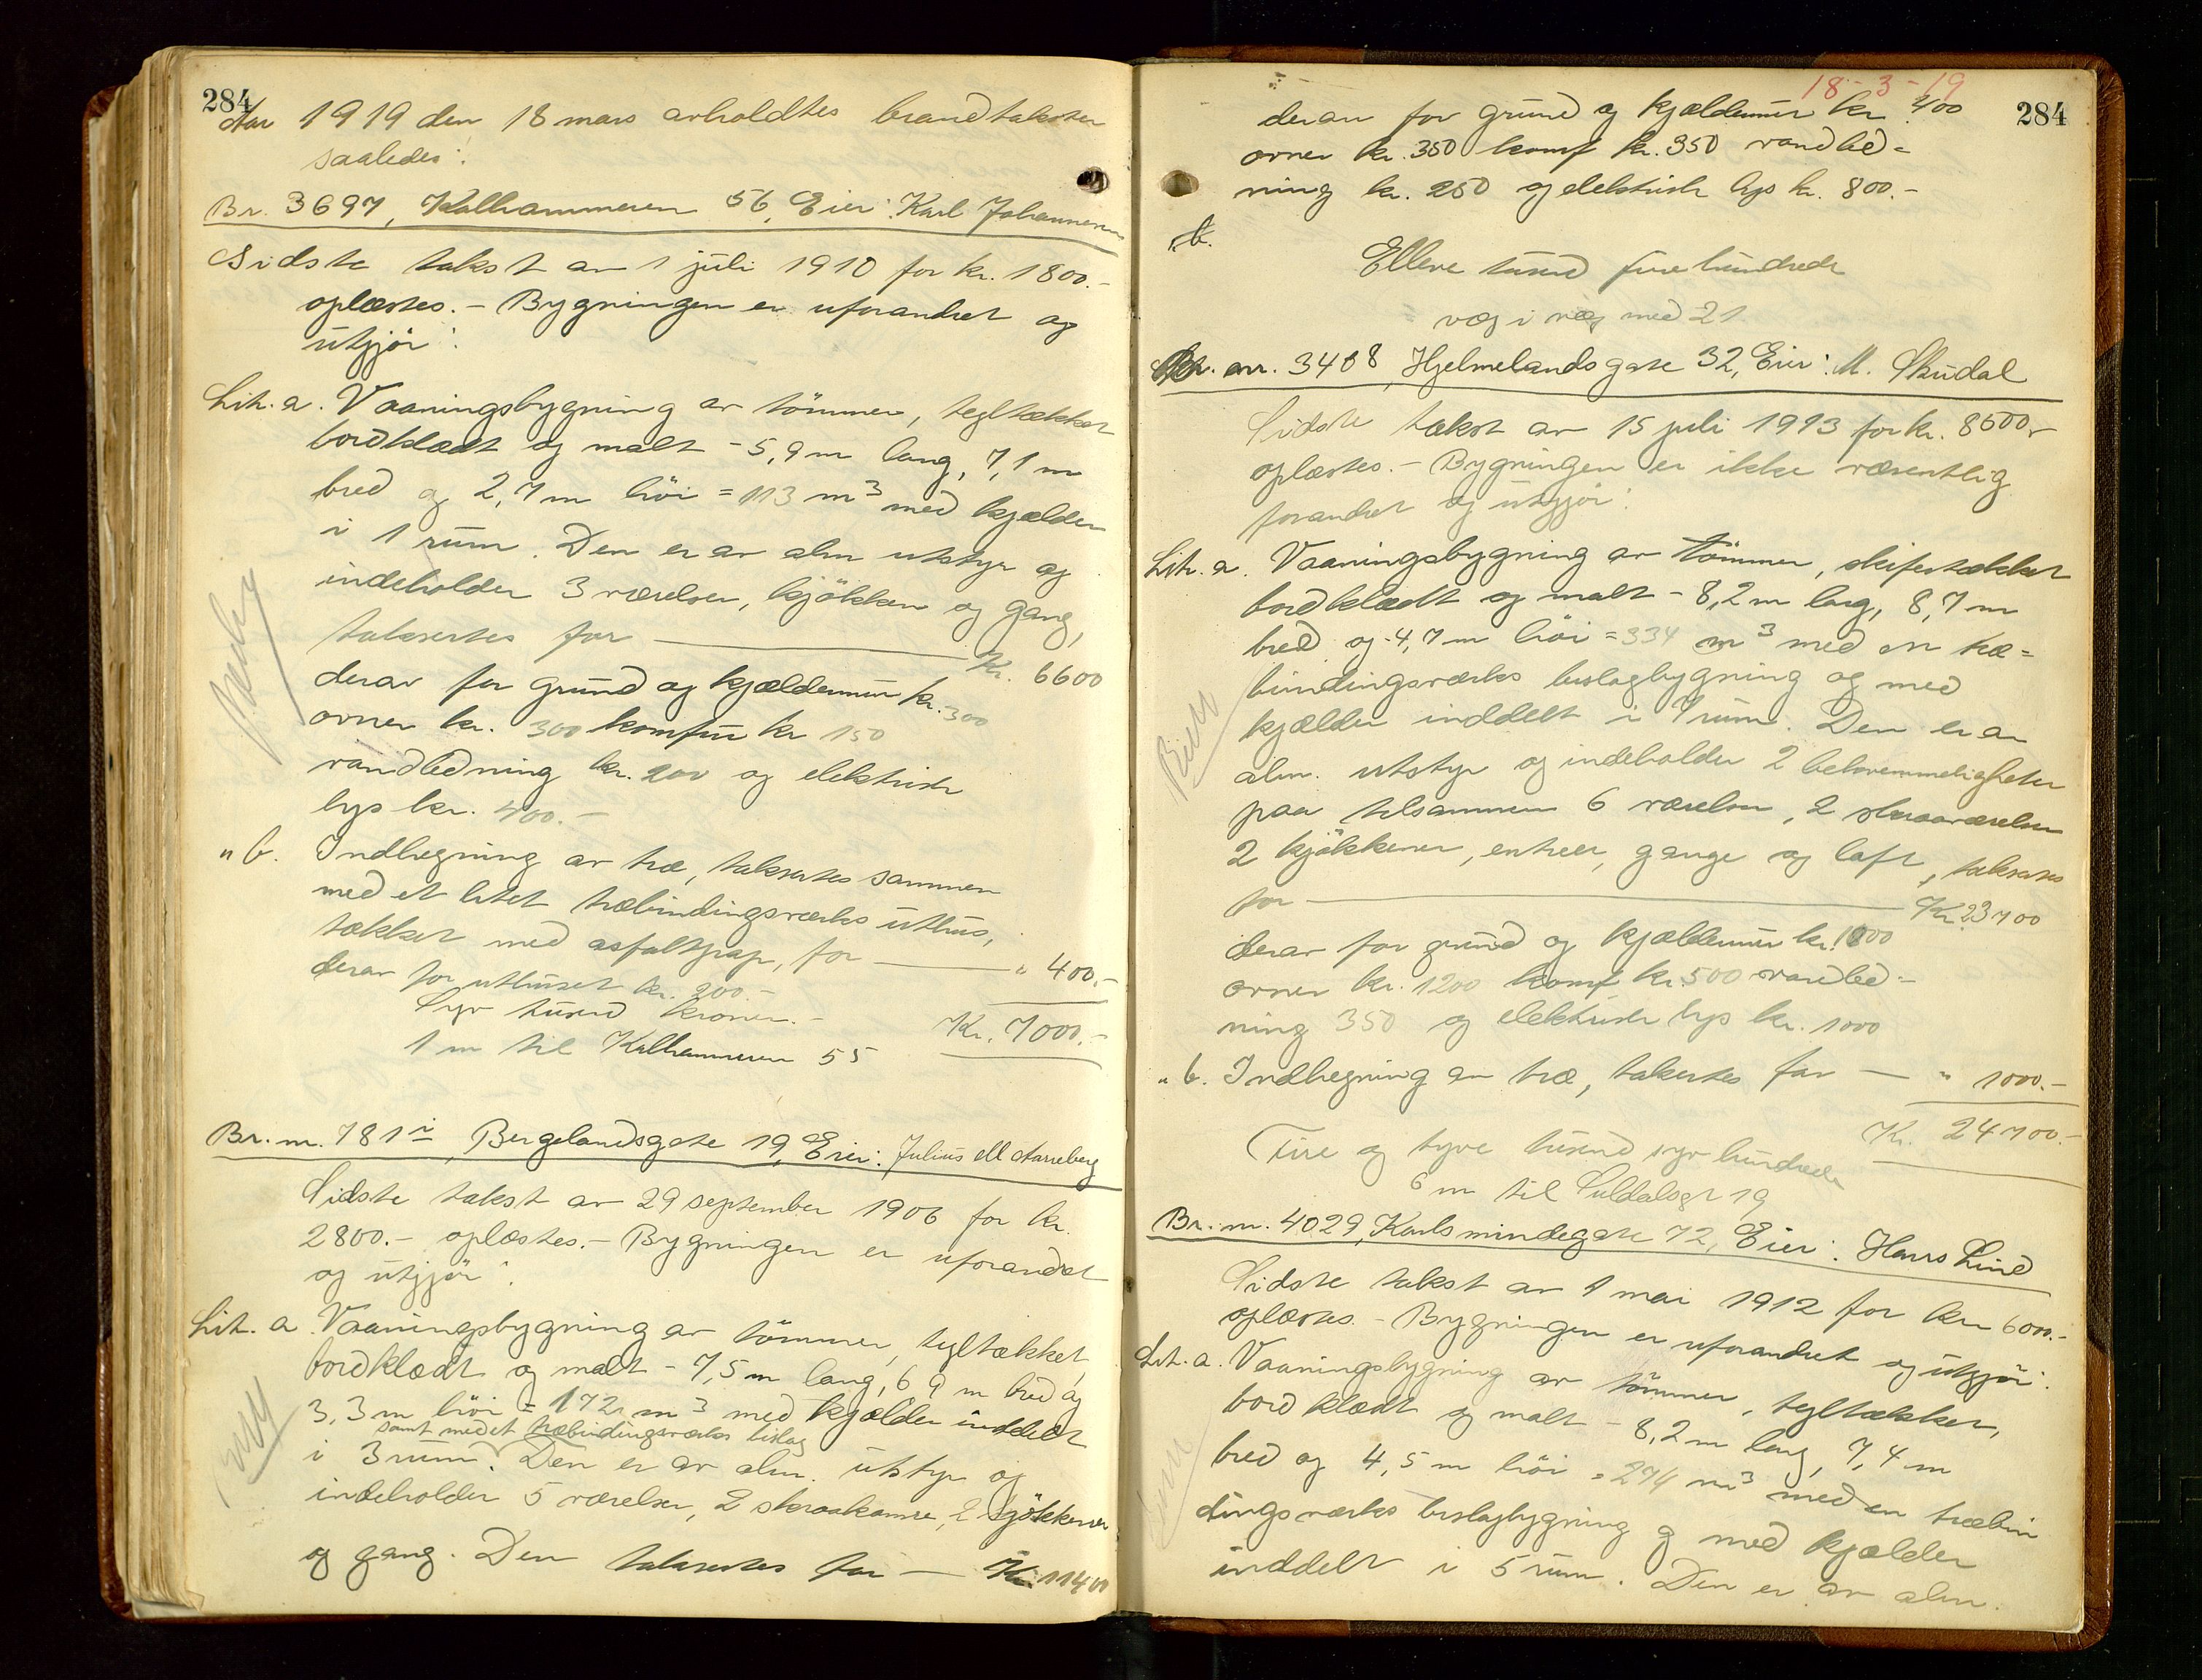 284
Aar 1919 den 18 mars avholdtes brandtakster
saaledes:
Br. 3697, Kalhammeren 56, Eier: Karl Johannesen
Sidste takst av 1 juli 1910 for kr. 1800.-
oplæstes. - Bygningen er uforandret og
utgjør:
Lit. a. Vaaningsbygning av tømmer, tegltækket
bordklædt og malt - 5,9 m lang, 7,1 m
bred og 2,7 m høi = 113 m³ med kjælder
i 1 rum. Den er av alm utstyr og
indeholder 3 værelser, kjøkken og gang,
takseres for — Kr. 6600
derav for grund og kjældermur kr. 300
ovner kr. 300 komfur kr 150
vandledning kr. 200 og elektrisk
lys kr. 400.-
" b. Indhegning av træ, takseres sammen
med et litet træbindingsverks uthus,
tækket med asfaltpap, for — " 400.-
derav for uthuset kr. 200.-
Syv tusend kroner. - Kr. 7000.-
1 m til Kalhammeren 55
Br. nr. 781 i, Bergelandsgate 19, Eier: Julius
Sidste takst av 29 september 1906 for kr.
2800.- oplæstes. - Bygningen er uforandret
og utgjør:
Lit. a. Vaaningsbygning av tømmer, tegltækket,
bordklædt og malt - 7,5 m lang, 6,9 m bred og
3,3 m høi = 172 m³ med kjælder inddelt
samt med et træbindingsverks bislag
i 3 rum. Den er av alm. utstyr og
indeholder 5 værelser, 2 skraakamre, 2 kjøkkener
og gang. Den takseres for — Kr. 11400
18-3-19
284
derav for grund og kjældermur kr 400
ovner kr. 350 komf kr. 350 vandled=
ning kr. 250 og elektrisk lys kr. 800.-
" b.
Elleve tusend fire hundrede
væg i væg med 21
Br. nr. 3408, Hjelmelandsgate 32, Eier: M. Skudal
Sidste takst av 15 juli 1913 for kr. 8500.-
oplæstes. - Bygningen er ikke væsentlig
forandret og utgjør:
Lit. a. Vaaningsbygning av tømmer, skifertækket
bordklædt og malt - 8,2 m lang, 8,7 m
bred og 4,7 m høi = 334 m³ med en træ=
bindingsverks bislagbygning og med
kjælder inddelt i 7 rum. Den er av
alm. utstyr og indeholder 2 bekvemmeligheter
paa tilsammen 6 værelser, 2 skraaværelser
2 kjøkkener, entreer, gange og loft, takseres
for — Kr. 23700
derav for grund og kjældermur kr. 1800
ovner kr. 1200 komf kr. 500 vandled=
ning 350 og elektrisk lys kr. 1000
" b. Indhegning av træ, takseres for — " 1000.-
Kr. 24700.-
Fire og tyve tusend syv hundrede
6 m til Suldalsgt 19
Br. nr. 4029, Karlsmindegate 72, Eier: Hans Lind
Sidste takst av 1 mai 1912 for kr 6000.-
oplæstes. - Bygningen er uforandret og utgjør:
Lit. a. Vaaningsbygning av tømmer, tegltækket,
bordklædt og malt - 8,2 m lang, 7,4 m
bred og 4,5 m høi = 274 m³ med en træbin
dingsverks bislagbygning og med kjælder
inddelt i 5 rum. Den er av alm.